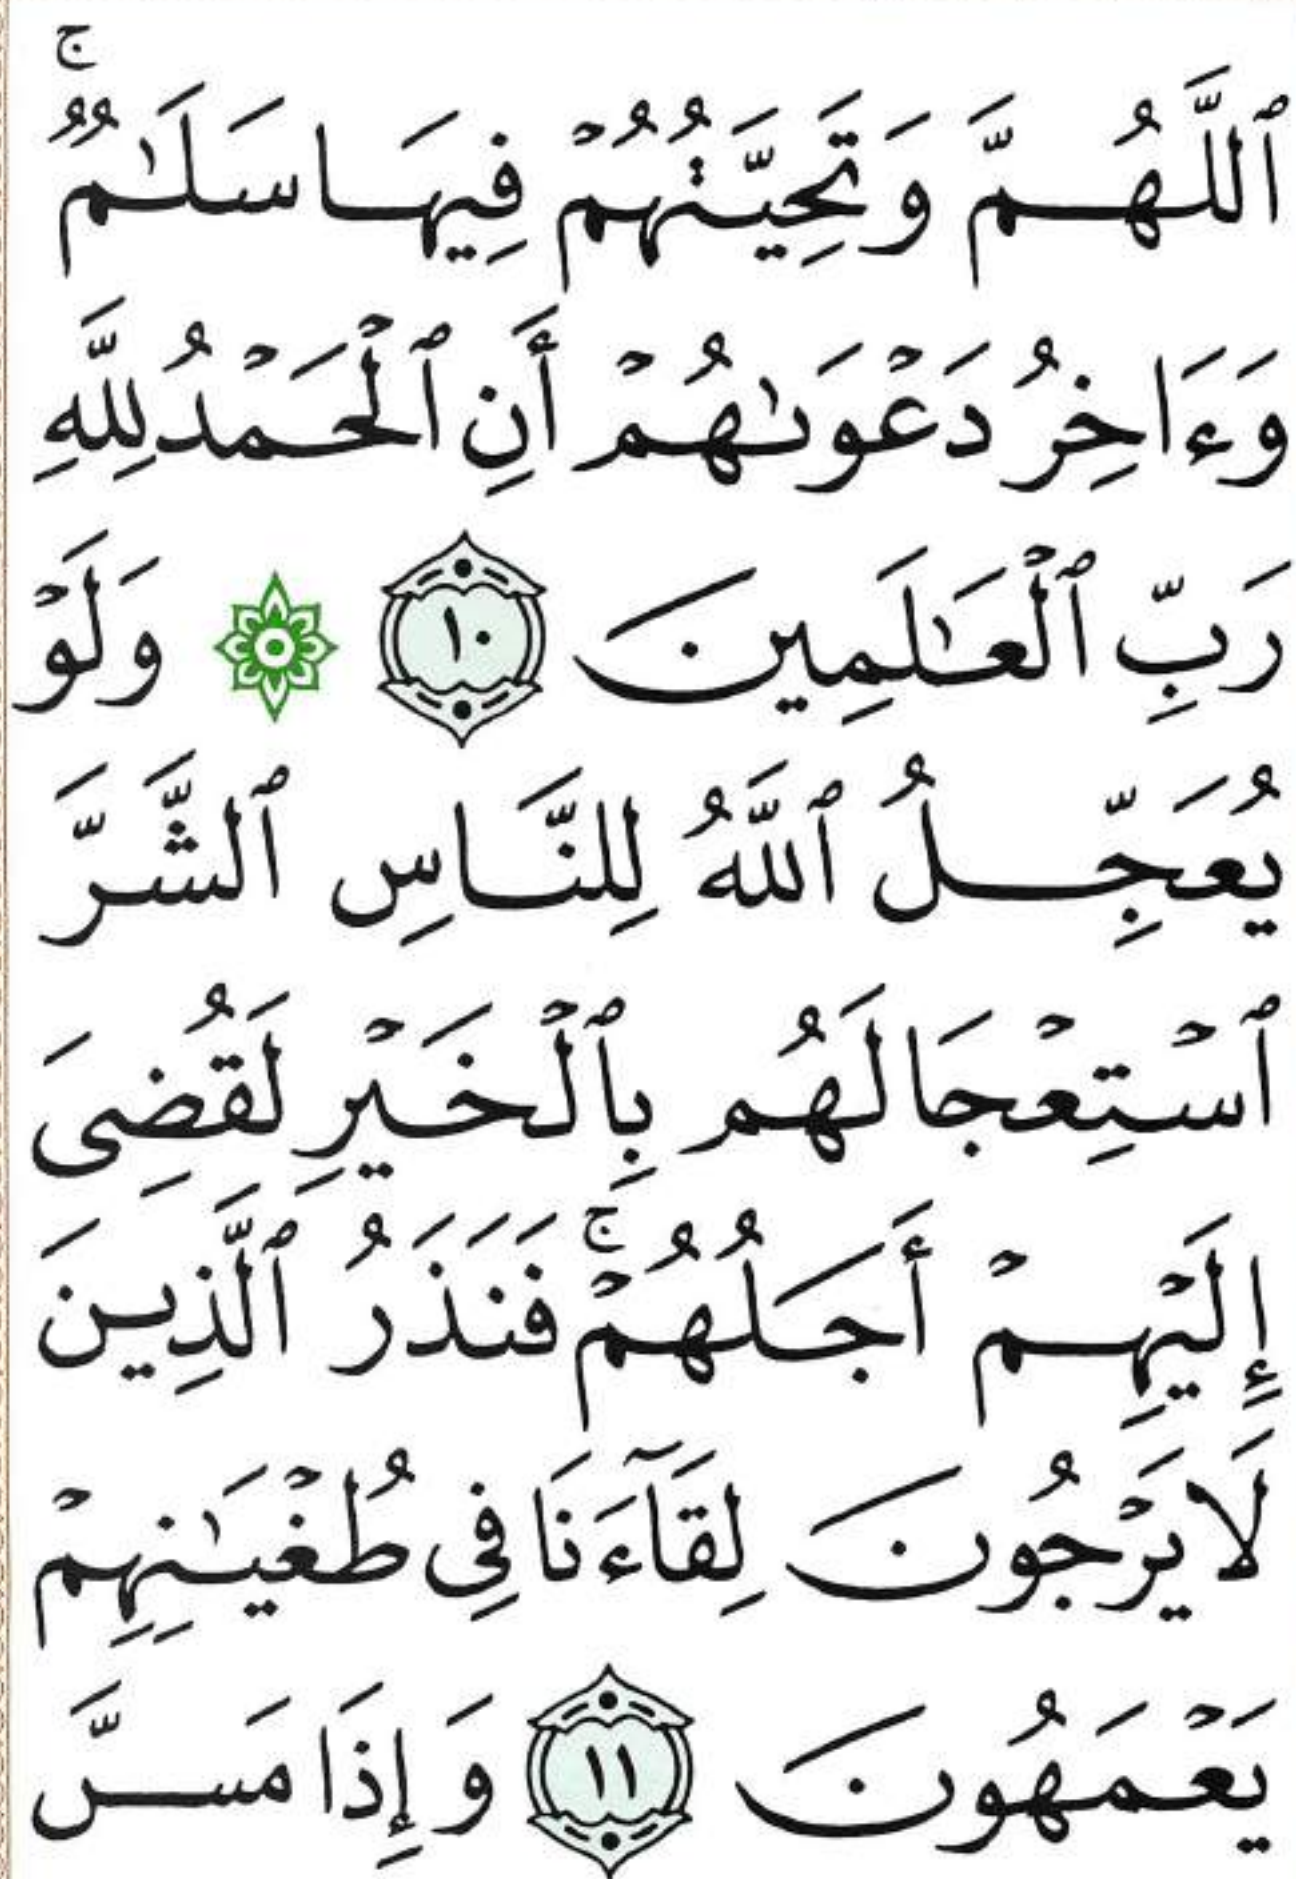 ٱللَّهُمَّ وَتَحِيَّتُهُمۡ فِيهَا سَلَٰمٞۚ
وَءَاخِرُ دَعۡوَىٰهُمۡ أَنِ ٱلۡحَمۡدُ لِلَّهِ
رَبِّ ٱلۡعَٰلَمِينَ ١٠ ۞ وَلَوۡ
يُعَجِّلُ ٱللَّهُ لِلنَّاسِ ٱلشَّرَّ
ٱسۡتِعۡجَالَهُم بِٱلۡخَيۡرِ لَقُضِيَ
إِلَيۡهِمۡ أَجَلُهُمۡۚ فَنَذَرُ ٱلَّذِينَ
لَا يَرۡجُونَ لِقَآءَنَا فِي طُغۡيَٰنِهِمۡ
يَعۡمَهُونَ ١١ وَإِذَا مَسَّ